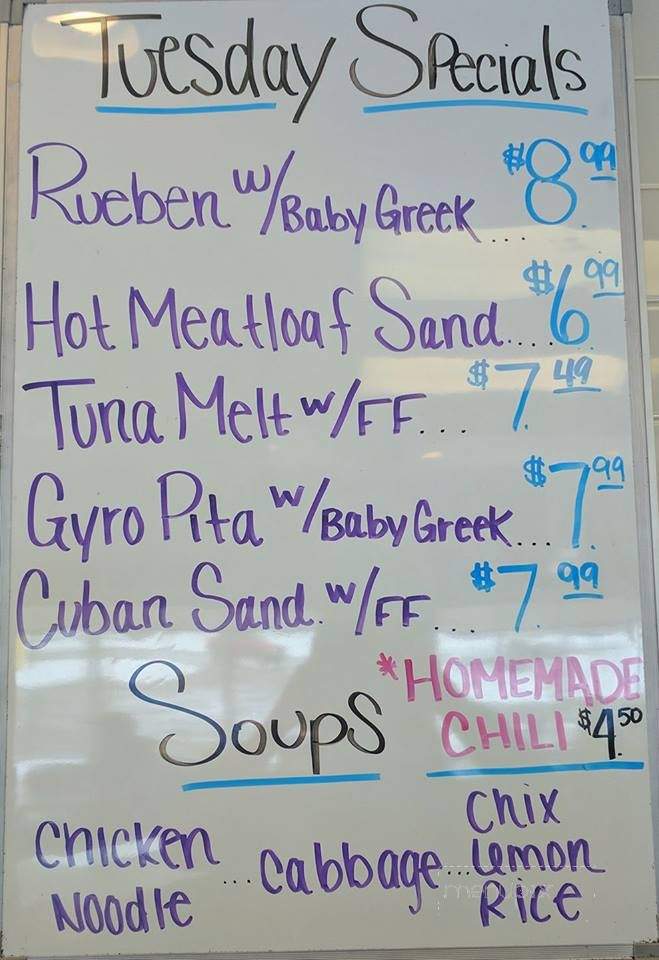 Tuesday Specials
Rueben w/Baby Greek .... $8.99
Hot Meatloaf Sand.... $6.99
Tuna Melt w/FF... $7.49
Gyro Pita w/Baby Greek... $7.99
Cuban Sand. w/FF ... $7.99
Soups
*HOMEMADE
CHILI $4.50
Chicken
Noodle
... Cabbage ...
Chix
Lemon
Rice
menupix